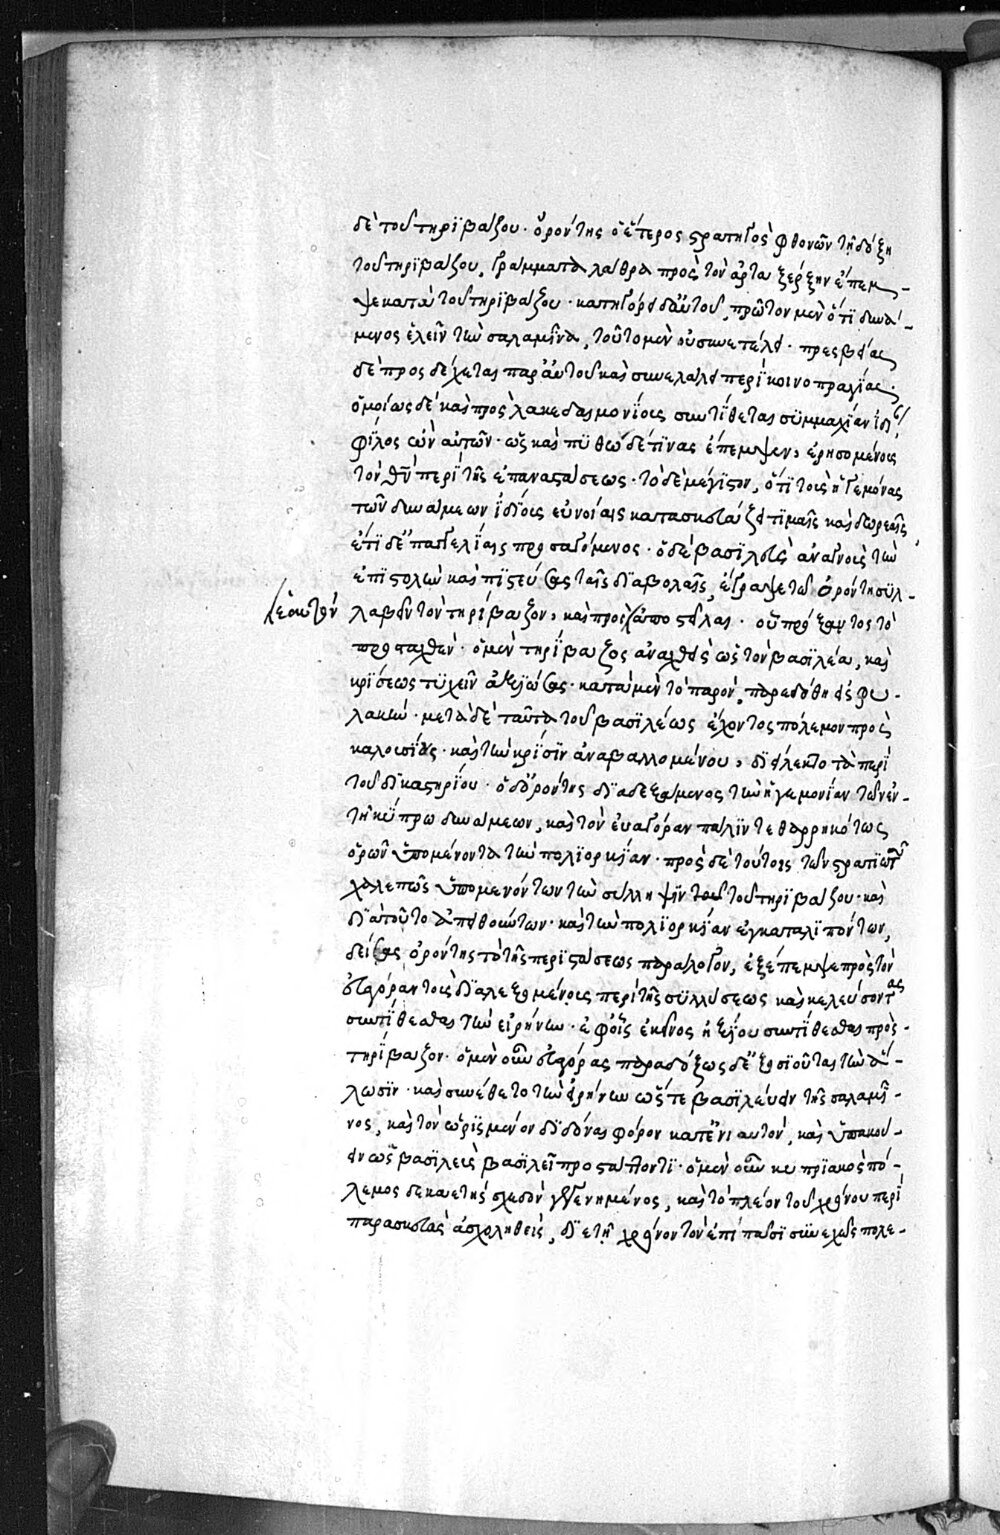 δὲ τοῦ τηριβάζου· ὀρόντης ὁ ἕτερος στρατηγὸς φθονῶν τῇ δόξῃ
τοῦ τηριβάζου, γράμματα λάθρα πρὸς τὸν ἀρταξέρξην ἔπεμ-
ψε κατὰ τοῦ τηριβάζου· κατηγόρει δ' αὐτοῦ, πρῶτον μὲν ὅτι δυνά-
μενος ἑλεῖν τὴν σαλαμῖνα, τοῦτο μὲν οὐ συνετέλει· πρεσβείας
δὲ προσδέχεται παρ' αὐτοῦ καὶ συνελάλει περὶ κοινοπραγίας·
ὁμοίως δὲ καὶ πρὸς λακεδαιμονίους συντίθεται συμμαχίαν ἰδίᾳ,
φίλος ὢν αὐτῶν· ὡς καὶ πυθώδέ τινας ἔπεμψεν, ἐρησομένους
τὸν θν περὶ τῆς ἐπαναστάσεως· τὸ δὲ μέγιστον, ὅτι τοὺς ἡγεμόνας
τῶν δυνάμεων ἰδίους εὐνοίαις κατασκευάζει τιμαῖς καὶ δωρεαῖς,
ἔτι δ' ἐπαγγελίαις προσαγόμενος· ὁ δὲ βασιλεὺς ἀναγνοὺς τὴν
ἐπιστολὴν καὶ πιστεύσας ταῖς διαβολαῖς, ἔγραψε τῷ ὀρόντῃ συλ-
λαβεῖν τὸν τηρίβαζον, καὶ πρὸς ἀποστεῖλαι· οὗ πράξαντος τὸ
ἑαυτὸν
προσταχθὲν· ὁ μὲν τηρίβαζος ἀναχθεὶς ὡς τὸν βασιλέα, καὶ
κρίσεως τυχεῖν ἀξιώσας· κατὰ μὲν τὸ παρὸν, παρεδόθη εἰς φυ-
λακήν· μετὰ δὲ ταῦτα τοῦ βασιλέως ἔχοντος πόλεμον πρὸς
καδουσίους· καὶ τὴν κρίσιν ἀναβαλλομένου, διείλεκτο τὰ περὶ
τοῦ δικαστηρίου· ὁ δ' ὀρόντης διαδεξάμενος τὴν ἡγεμονίαν τῶν ἐν
τῇ κύπρω δυνάμεων, καὶ τὸν εὐαγόραν πάλιν τεθαρρηκότως
ὁρῶν ὑπομένοντα τὴν πολιορκίαν· πρὸς δὲ τούτοις τῶν στρατιωτῶν
χαλεπῶς ὑπομενόντων τὴν σύλληψιν τοῦ τηριβάζου· καὶ
διὰ τοῦτο ἀπειθούντων· καὶ τὴν πολιορκίαν ἐγκαταλιπόντων,
δείσας ὀρόντης τὸ τῆς περιστάσεως παράλογον, ἐξέπεμψε πρὸς τὸν
εὐαγόραν τοὺς διαλεξομένους περὶ τῆς συλλύσεως καὶ κελεύσοντας
συντίθεσθαι τὴν εἰρήνην· ἐφ' οἷς ἐκεῖνος ἠξίου συντίθεσθαι πρὸς
τηρίβαζον· ὁ μὲν οὖν εὐαγόρας παραδόξως δ' ἐξσιοῦται τὴν ἅ-
λωσιν· καὶ συνέθετο τὴν εἰρήνην ὥστε βασιλεύειν τῆς σαλαμῖ-
νος, καὶ τὸν ὡρισμένον διδόναι φόρον κατ' ἐνιαυτὸν, καὶ ὑπακού-
ειν ὡς βασιλεὺς βασιλεῖ προστάττοντι· ὁ μὲν οὖν κυπριακὸς πό-
λεμος δεκαετὴς σχεδὸν γεγενημένος, καὶ τὸ πλέον τοῦ χρόνου περὶ
παρασκευὰς ἀσχοληθεὶς, διετῆ χρόνον τὸν ἐπὶ πᾶσι συνεχῶς πολε-